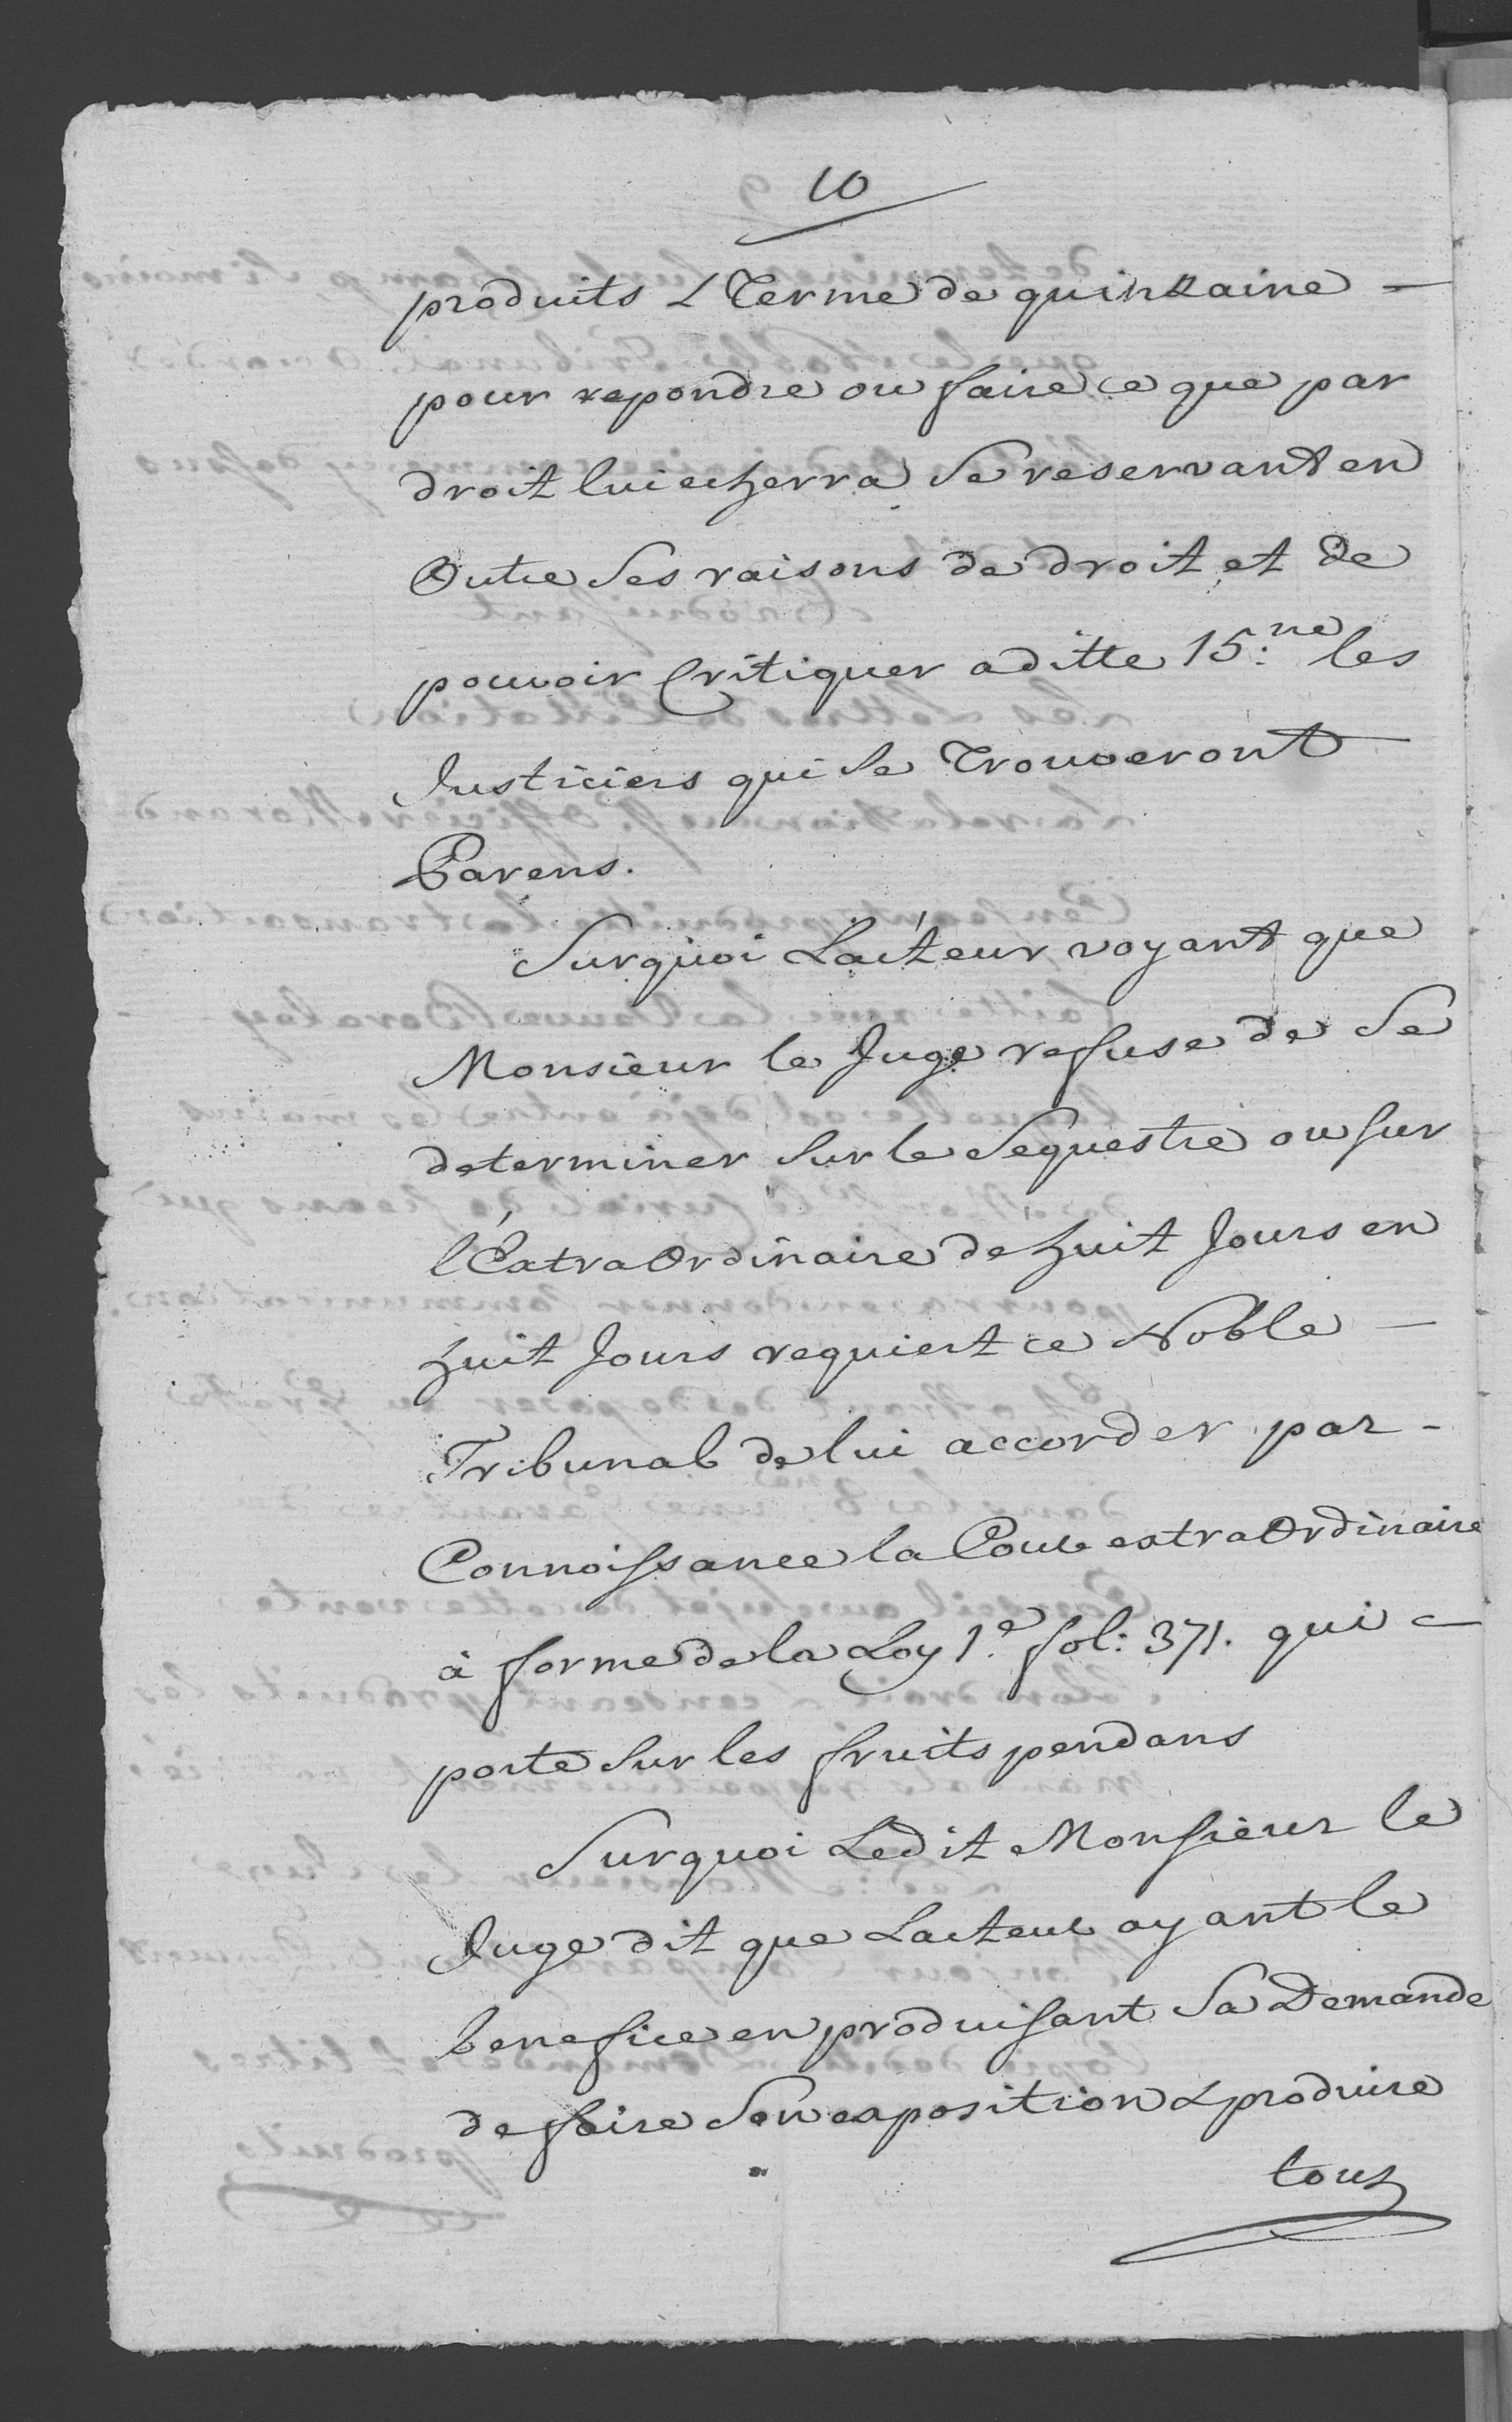 10
produits & Terme de quinzaine -
pour repondre ou faire ce que par
droit lui echerra Se reservant en
Outre Ses raisons de droit et de
pouvoir Critiquer aditte 15.ne les
Justiciers qui Se Trouveront
Parens.
Surquoi Lacteur voyant que
Monsieur le Juge refuse de Se
determiner Sur le Sequestre ou sur
l'ExtraOrdinaire de huit Jours en
huit Jours requiert ce Noble -
Tribunal de lui accorder par -
Connoissance la Cour extraOrdinaire
à forme de la Loy 1.e fol: 371. qui -
porte Sur les fruits pendans
Surquoi Ledit Monsieur le
Juge dit que Lacteur ayant le
benefice en produisant Sa Demande
de faire Son exposition & produire
tous